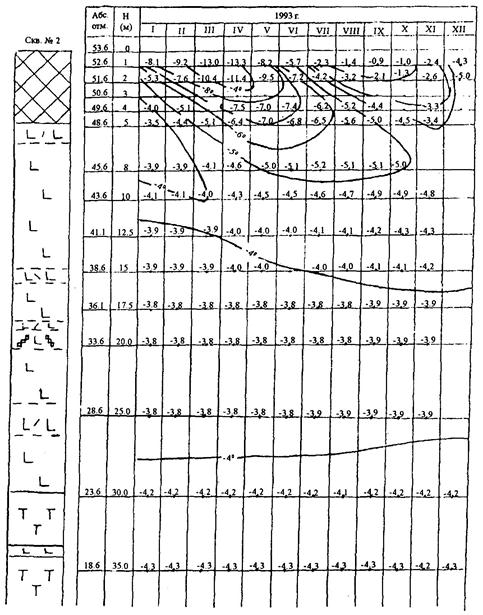 Скв. № 2
Абс. отм. Н (м) 1993 г.
I II III IV V VI VII VIII IX X XI XII
53.6 0
52.6 1 -8,1 -9,2 -13,0 -13,3 -8,2 -5,7 -2,3 -1,4 -0,9 -1,0 -2,4 -4,3
51.6 2 -5,3 -7,6 -10,4 -11,4 -9,5 -7,2 -4,2 -3,2 -2,1 -1,3 -2,6 -5,0
50.6 3 -8° -4°
49.6 4 -4,0 -5,1 -7,5 -7,0 -7,4 -6,2 -5,2 -4,4 -3,3
48.6 5 -3,5 -4,5 -5,1 -6,4 -7,0 -6,8 -6,5 -5,6 -5,0 -4,5 -3,4
-6°
-5°
45.6 8 -3,9 -3,9 -4,1 -4,6 -5,0 -5,1 -5,2 -5,1 -5,1 -5,0
-4°
43.6 10 -4,1 -4,1 -4,0 -4,3 -4,5 -4,5 -4,6 -4,7 -4,9 -4,9 -4,8
41.1 12.5 -3,9 -3,9 -3,9 -4,0 -4,0 -4,1 -4,1 -4,1 -4,2 -4,3 -4,3
-4°
38.6 15 -3,9 -3,9 -3,9 -4,0 -4,0 -4,0 -4,0 -4,1 -4,1 -4,2
36.1 17.5 -3,8 -3,8 -3,8 -3,8 -3,8 -3,8 -3,8 -3,8 -3,9 -3,9 -3,9
33.6 20.0 -3,8 -3,8 -3,8 -3,8 -3,8 -3,8 -3,8 -3,8 -3,9 -3,9 -3,9
28.6 25.0 -3,8 -3,8 -3,8 -3,8 -3,8 -3,8 -3,9 -3,9 -3,9 -3,9 -3,9
-4°
23.6 30.0 -4,2 -4,2 -4,2 -4,2 -4,2 -4,2 -4,2 -4,1 -4,2 -4,2 -4,2 -4,2
18.6 35.0 -4,3 -4,3 -4,3 -4,3 -4,3 -4,3 -4,3 -4,3 -4,3 -4,3 -4,2 -4,3